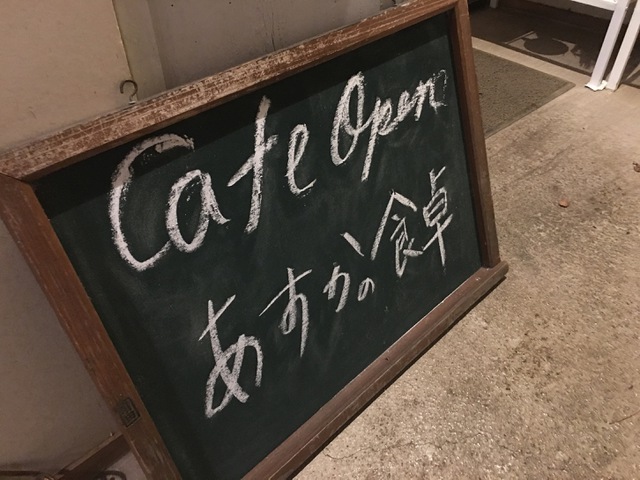 Cafe Open
あすかの食卓